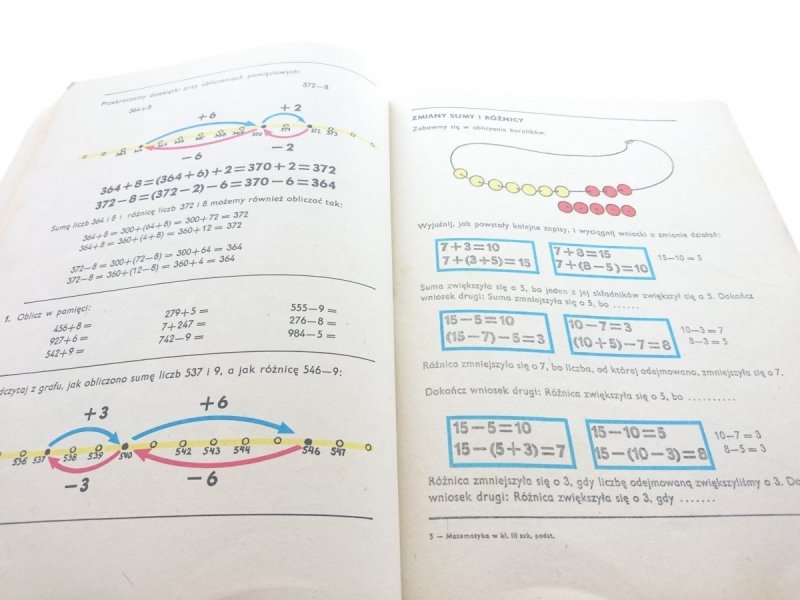 Przekraczamy dziesiątki przy obliczeniach pamięciowych:
364+8
372−8
+6
+2
370
371
372
373
−6
−2
364+8=(364+6)+2=370+2=372
372−8=(372−2)−6=370−6=364
Sumę liczb 364 i 8 i różnicę liczb 372 i 8 możemy również obliczać tak:
364+8 = 300+(64+8) = 300+72 = 372
364+8 = 360+(4+8) = 360+12 = 372
372−8 = 300+(72−8) = 300+64 = 364
372−8 = 360+(12−8) = 360+4 = 364
1. Oblicz w pamięci:
456+8 =
279+5 =
555−9 =
927+6 =
7+247 =
276−8 =
542+9 =
742−9 =
984−5 =
dczytaj z grafu, jak obliczono sumę liczb 537 i 9, a jak różnicę 546−9:
+3
+6
536 537 538 539 540 542 543 544 546 547
−3
−6
ZMIANY SUMY I RÓŻNICY
Zabawmy się w obliczanie koralików:
Wyjaśnij, jak powstały kolejne zapisy, i wyciągnij wnioski o zmianie działań:
7+3=10
7+(3+5)=15
7+8=15
7+(8−5)=10
15−10 = 5
Suma zwiększyła się o 5, bo jeden z jej składników zwiększył się o 5. Dokończ
wniosek drugi: Suma zmniejszyła się o 5, bo ......
15−5=10
(15−7)−5=3
10−7=3
(10+5)−7=8
10−3 = 7
8−3 = 5
Różnica zmniejszyła się o 7, bo liczba, od której odejmowano, zmniejszyła się o 7.
Dokończ wniosek drugi: Różnica zwiększyła się o 5, bo ..........
15−5=10
15−(5+3)=7
15−10=5
15−(10−3)=8
10−7 = 3
8−5 = 3
Różnica zmniejszyła się o 3, gdy liczbę odejmowaną zwiększyliśmy o 3. Do
wniosek drugi: Różnica zwiększyła się o 3, gdy .......
5 — Matematyka w kl. III szk. podst.